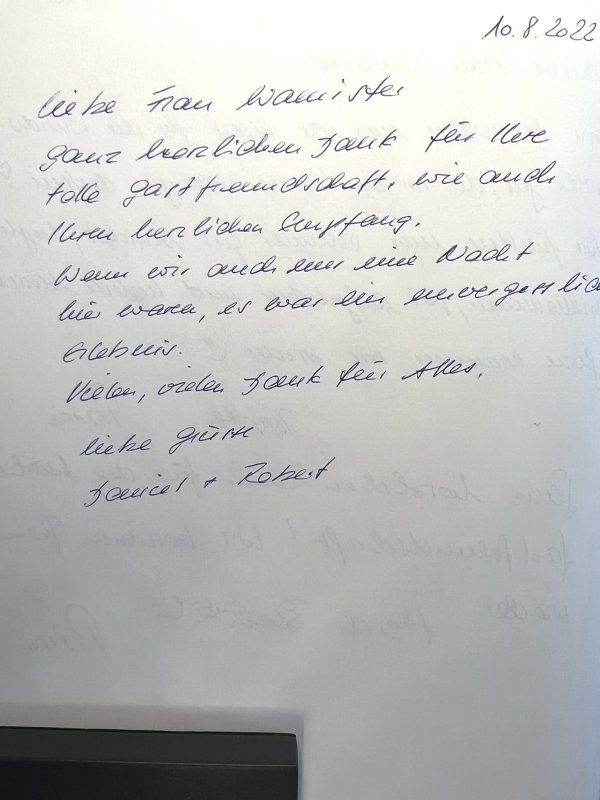 10.8.2022
liebe Frau Wannister
ganz herzlichen Dank für Ihre
tolle gastfreundschaft, wie auch
Ihren herzlichen Empfang.
Wenn wir auch nur eine Nacht
hier waren, es war ein unvergesslich
Erlebnis.
Vielen, vielen Dank für Alles.
liebe grüsse
Daniel + Robert